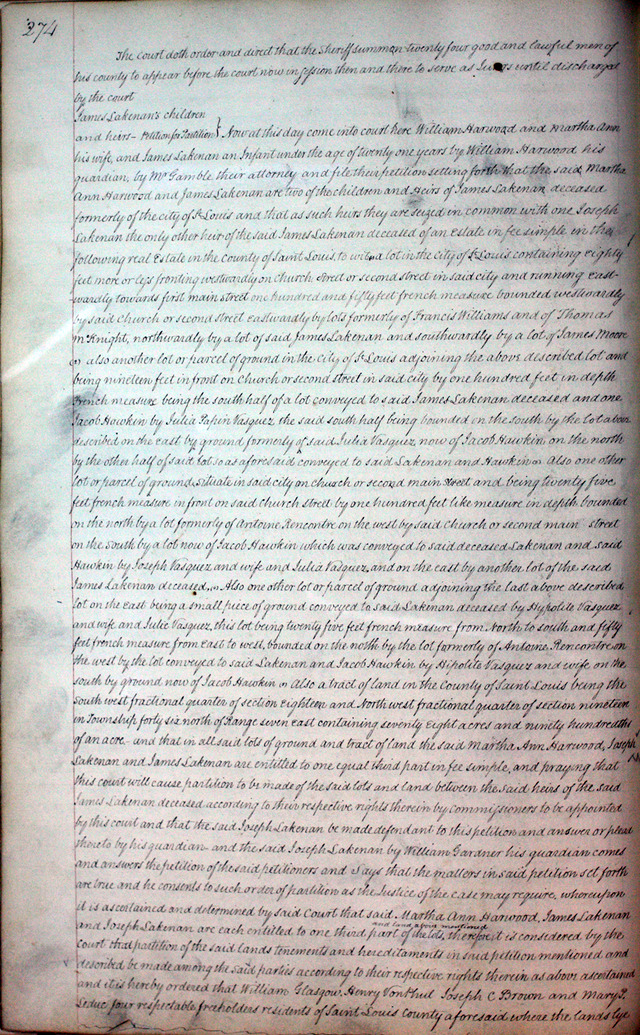 274
The Court doth order and direct that the Sheriff summon twenty four good and lawful men of
his county to appear before the court now in session then and there to serve as Jurors until discharged
by the court
James Lakenan's children
and heirs - Petition for Partition } Now at this day come into court here William Harwood and Martha Ann
his wife, and James Lakenan an Infant under the age of twenty one years by William Harwood his
guardian, by Mr Gamble their attorney and file their petition setting forth that the said Martha
Ann Harwood and James Lakenan are two of the children and Heirs of James Lakenan deceased
formerly of the city of St Louis and that as such heirs they are seized in common with one Joseph
Lakenan the only other heir of the said James Lakenan deceased of an estate in fee simple in the
following real Estate in the county of Saint Louis, to wit a lot in the City of St Louis containing eighty
feet more or less fronting westwardly on church street or second street in said city and running east-
wardly towards first main street one hundred and fifty feet french measure bounded westwardly
by said church or second street eastwardly by lots formerly of Francis Williams and of Thomas
McKnight, northwardly by a lot of said James Lakenan and southwardly by a lot of James Moore
also another lot or parcel of ground in the City of St Louis adjoining the above described lot and
being nineteen feet in front on Church or second street in said city by one hundred feet in depth
French measure being the south half of a lot conveyed to said James Lakenan deceased and one
Jacob Hawkin by Julia Papin Vasquez, the said south half being bounded on the south by the lot above
described on the east by ground formerly of said Julia Vasquez now of Jacob Hawkin on the north
by the other half of said lot so as aforesaid conveyed to said Lakenan and Hawkin Also one other
lot or parcel of ground situate in said city on church or second main street and being twenty five
feet french measure in front on said church street by one hundred feet like measure in depth bounded
on the north by a lot formerly of Antoine Rencontre on the west by said church or second main street
on the south by a lot now of Jacob Hawkin which was conveyed to said deceased Lakenan and said
Hawkin by Joseph Vasquez and wife and Julia Vasquez, and on the east by another lot of the said
James Lakenan deceased, Also one other lot or parcel of ground adjoining the last above described
lot on the east being a small piece of ground conveyed to said Lakenan deceased by Hypolite Vasquez
and wife and Julie Vasquez, this lot being twenty five feet french measure from North to south and fifty
feet french measure from east to west, bounded on the north by the lot formerly of Antoine Rencontre on
the west by the lot conveyed to said Lakenan and Jacob Hawkin by Hipolite Vasquez and wife on the
south by ground now of Jacob Hawkin Also a tract of land in the County of Saint Louis being the
south west fractional quarter of section eighteen and North west fractional quarter of section nineteen
in Township forty six north of Range seven east containing seventy eight acres and ninety hundredths
of an acre - and that in all said lots of ground and tract of land the said Martha Ann Harwood, Joseph
Lakenan and James Lakenan are entitled to one equal third part in fee simple, and praying that
this court will cause partition to be made of the said lots and land between the said heirs of the said
James Lakenan deceased according to their respective rights therein by commissioners to be appointed
by this court and that the said Joseph Lakenan be made defendant to this petition and answer or plead
thereto by his guardian - and the said Joseph Lakenan by William Gardner his guardian comes
and answers the petition of the said petitioners and says that the matters in said petition set forth
are true and he consents to such order of partition as the Justice of the case may require, whereupon
it is ascertained and determined by said Court that said Martha Ann Harwood, James Lakenan
and land above mentioned
and Joseph Lakenan are each entitled to one third part of the lots, therefore it is considered by the
court that partition of the said lands tenements and hereditaments in said petition mentioned and
described be made among the said parties according to their respective rights therein as above ascertained
and it is hereby ordered that William Glasgow, Henry VonPhul Joseph C Brown and Mary P.
Leduc four respectable freeholders residents of Saint Louis County aforesaid where the lands lye